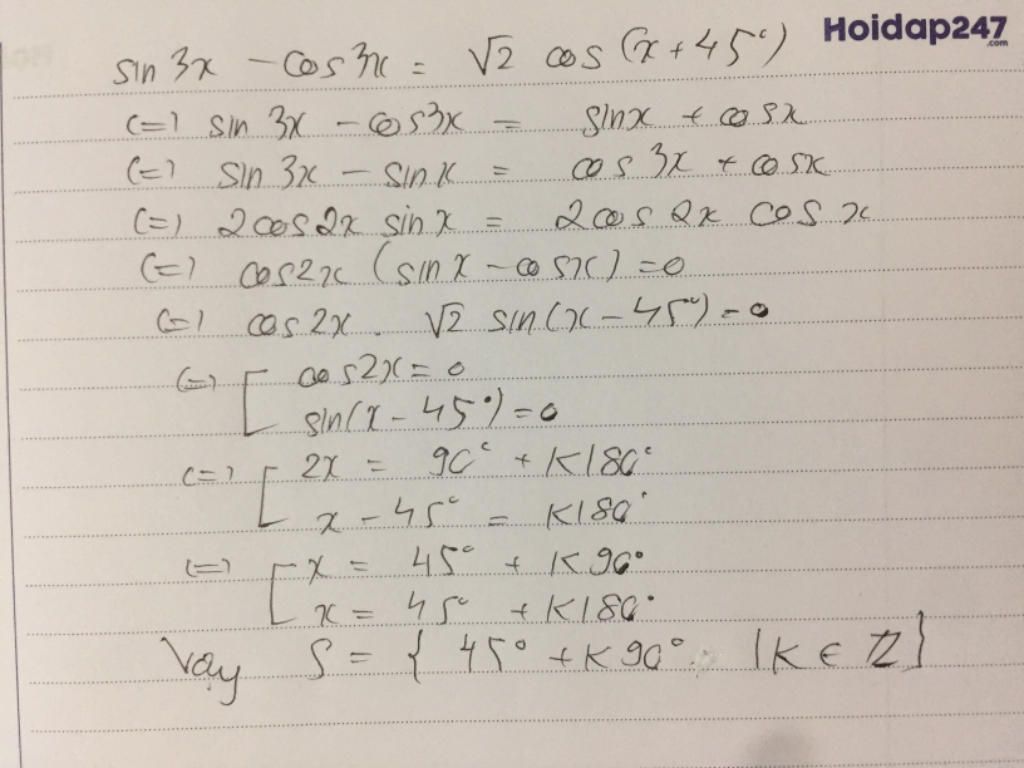 Hoidap247.com
sin 3x - cos 3x = √2 cos (x + 45°)
(=) sin 3x - cos3x = sinx + cosx
(=) sin 3x - sin x = cos 3x + cosx
(=) 2cos2x sin x = 2cos 2x cos x
(=) cos2x (sin x - cosx) = 0
(=) cos 2x . √2 sin(x - 45°) = 0
(=) [ cos2x = 0
sin(x - 45°) = 0
(=) [ 2x = 90° + K180°
x - 45° = K180°
(=) [ x = 45° + K90°
x = 45° + K180°
Vay S = { 45° + K90° | K ∈ Z }